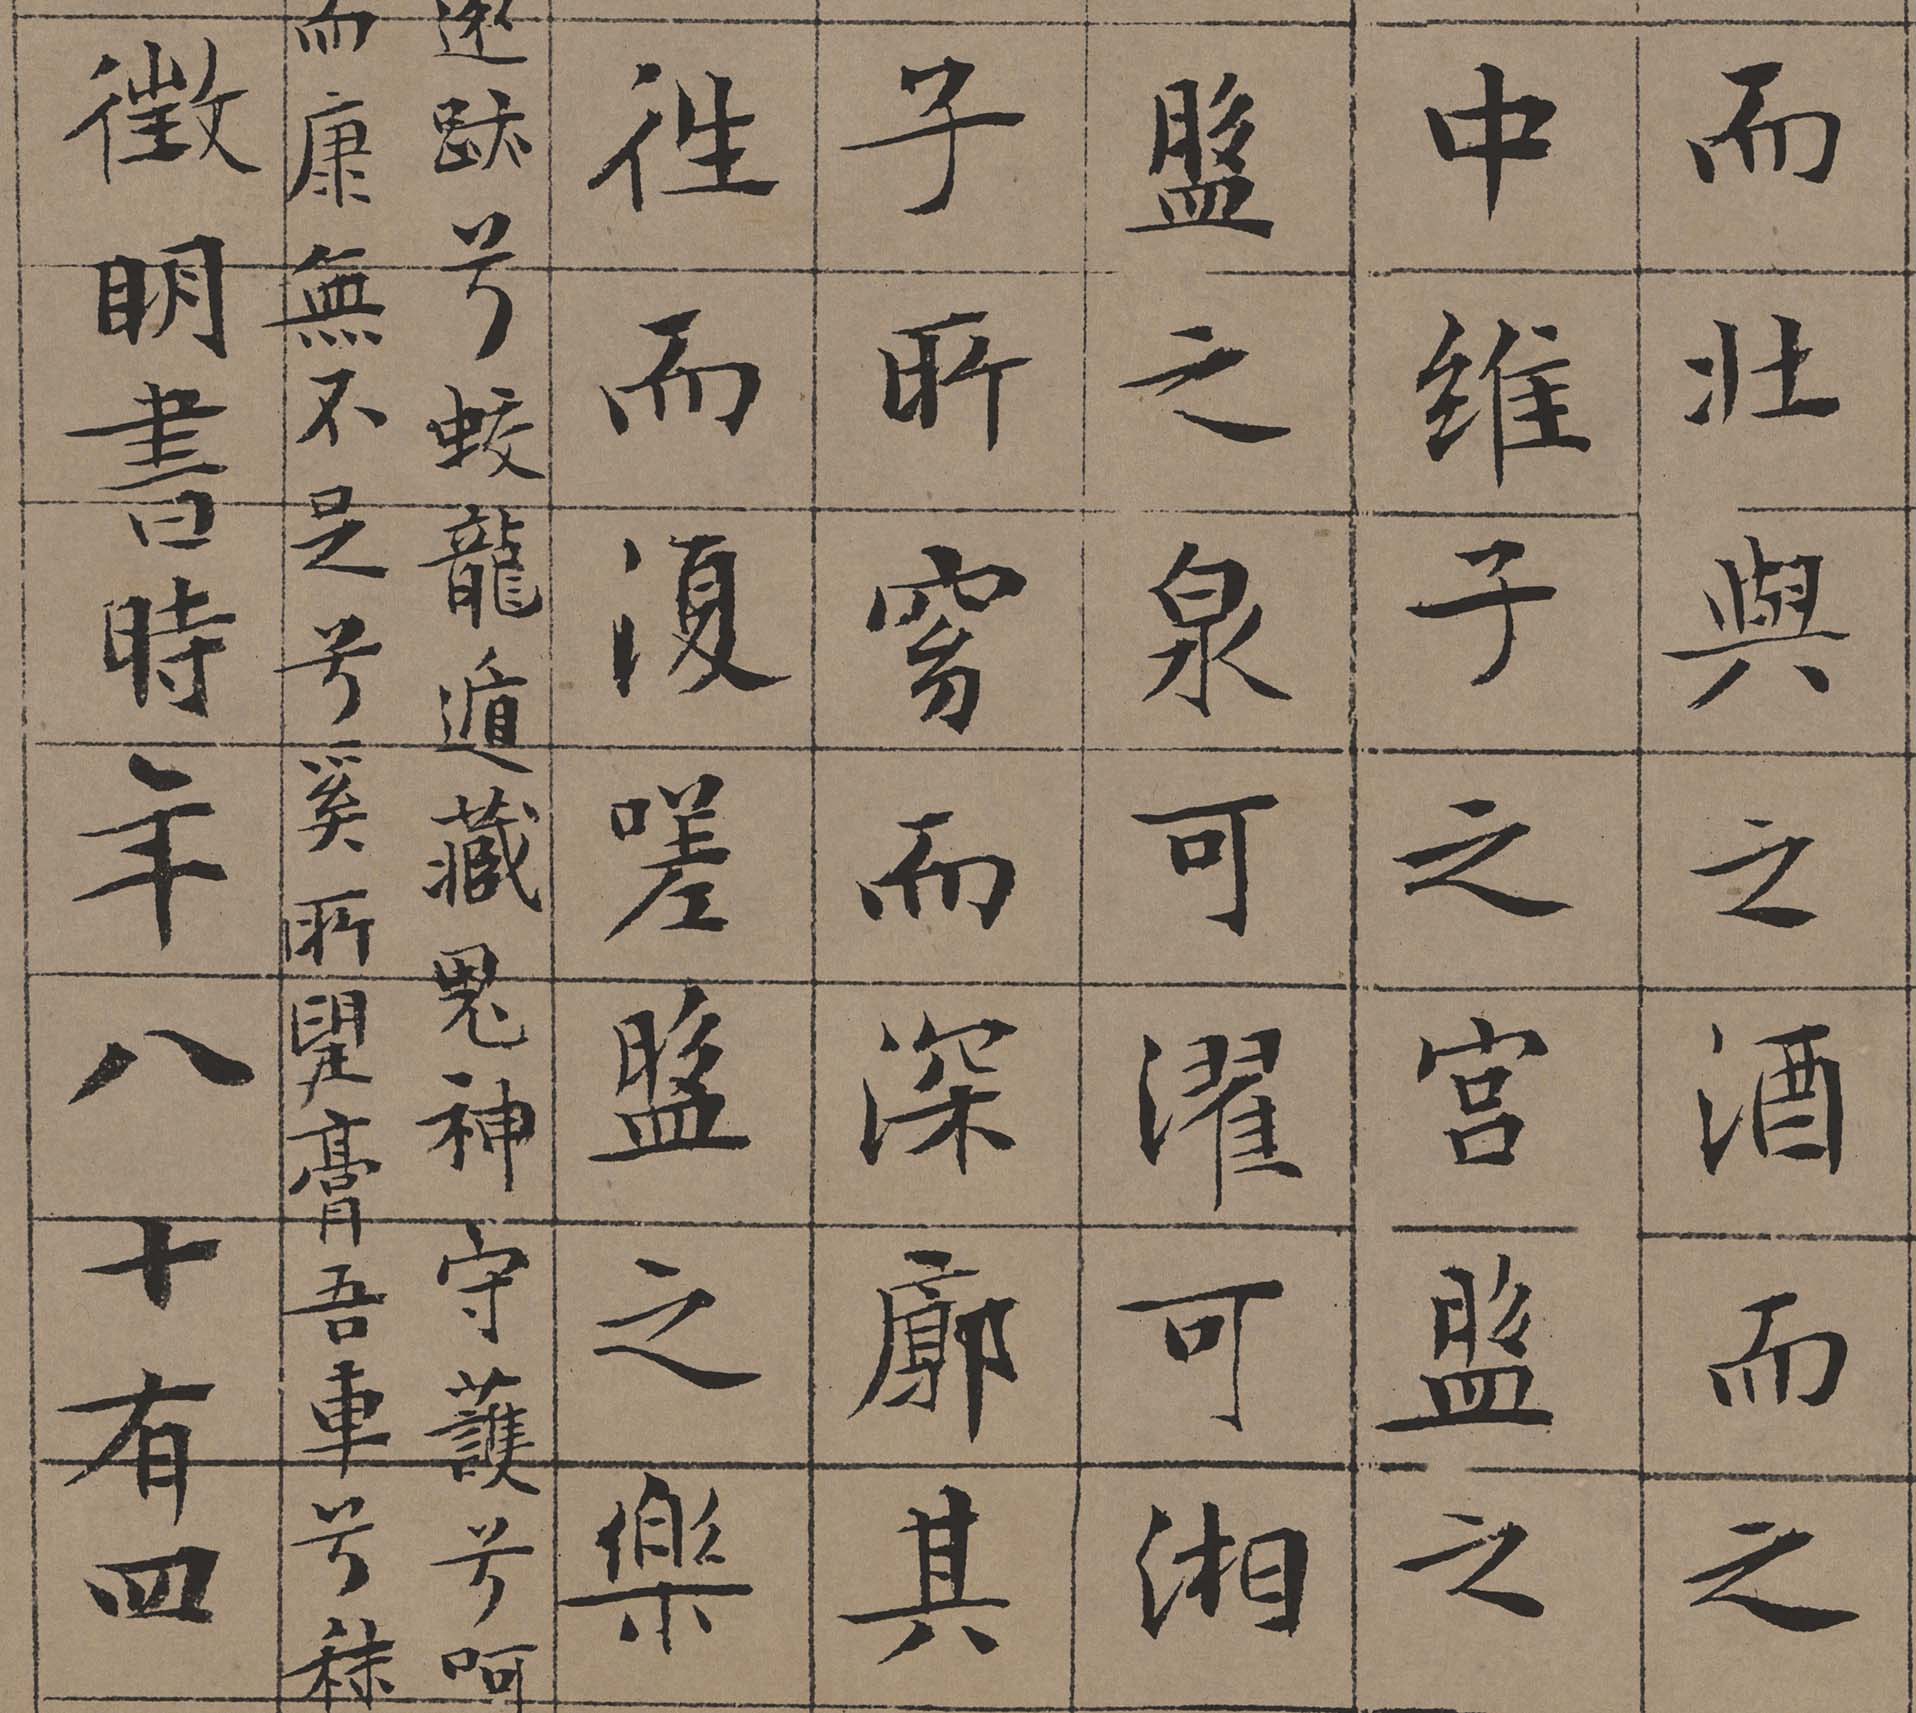 而壯與之酒而之
中維子之宮盤之
盤之泉可濯可湘
子所窈而深廓其
往而復嗟盤之樂
遠跡兮蛟龍遁藏鬼神守護兮呵
而康無不足兮奚所望膏吾車兮秣
徵明書時年八十有四